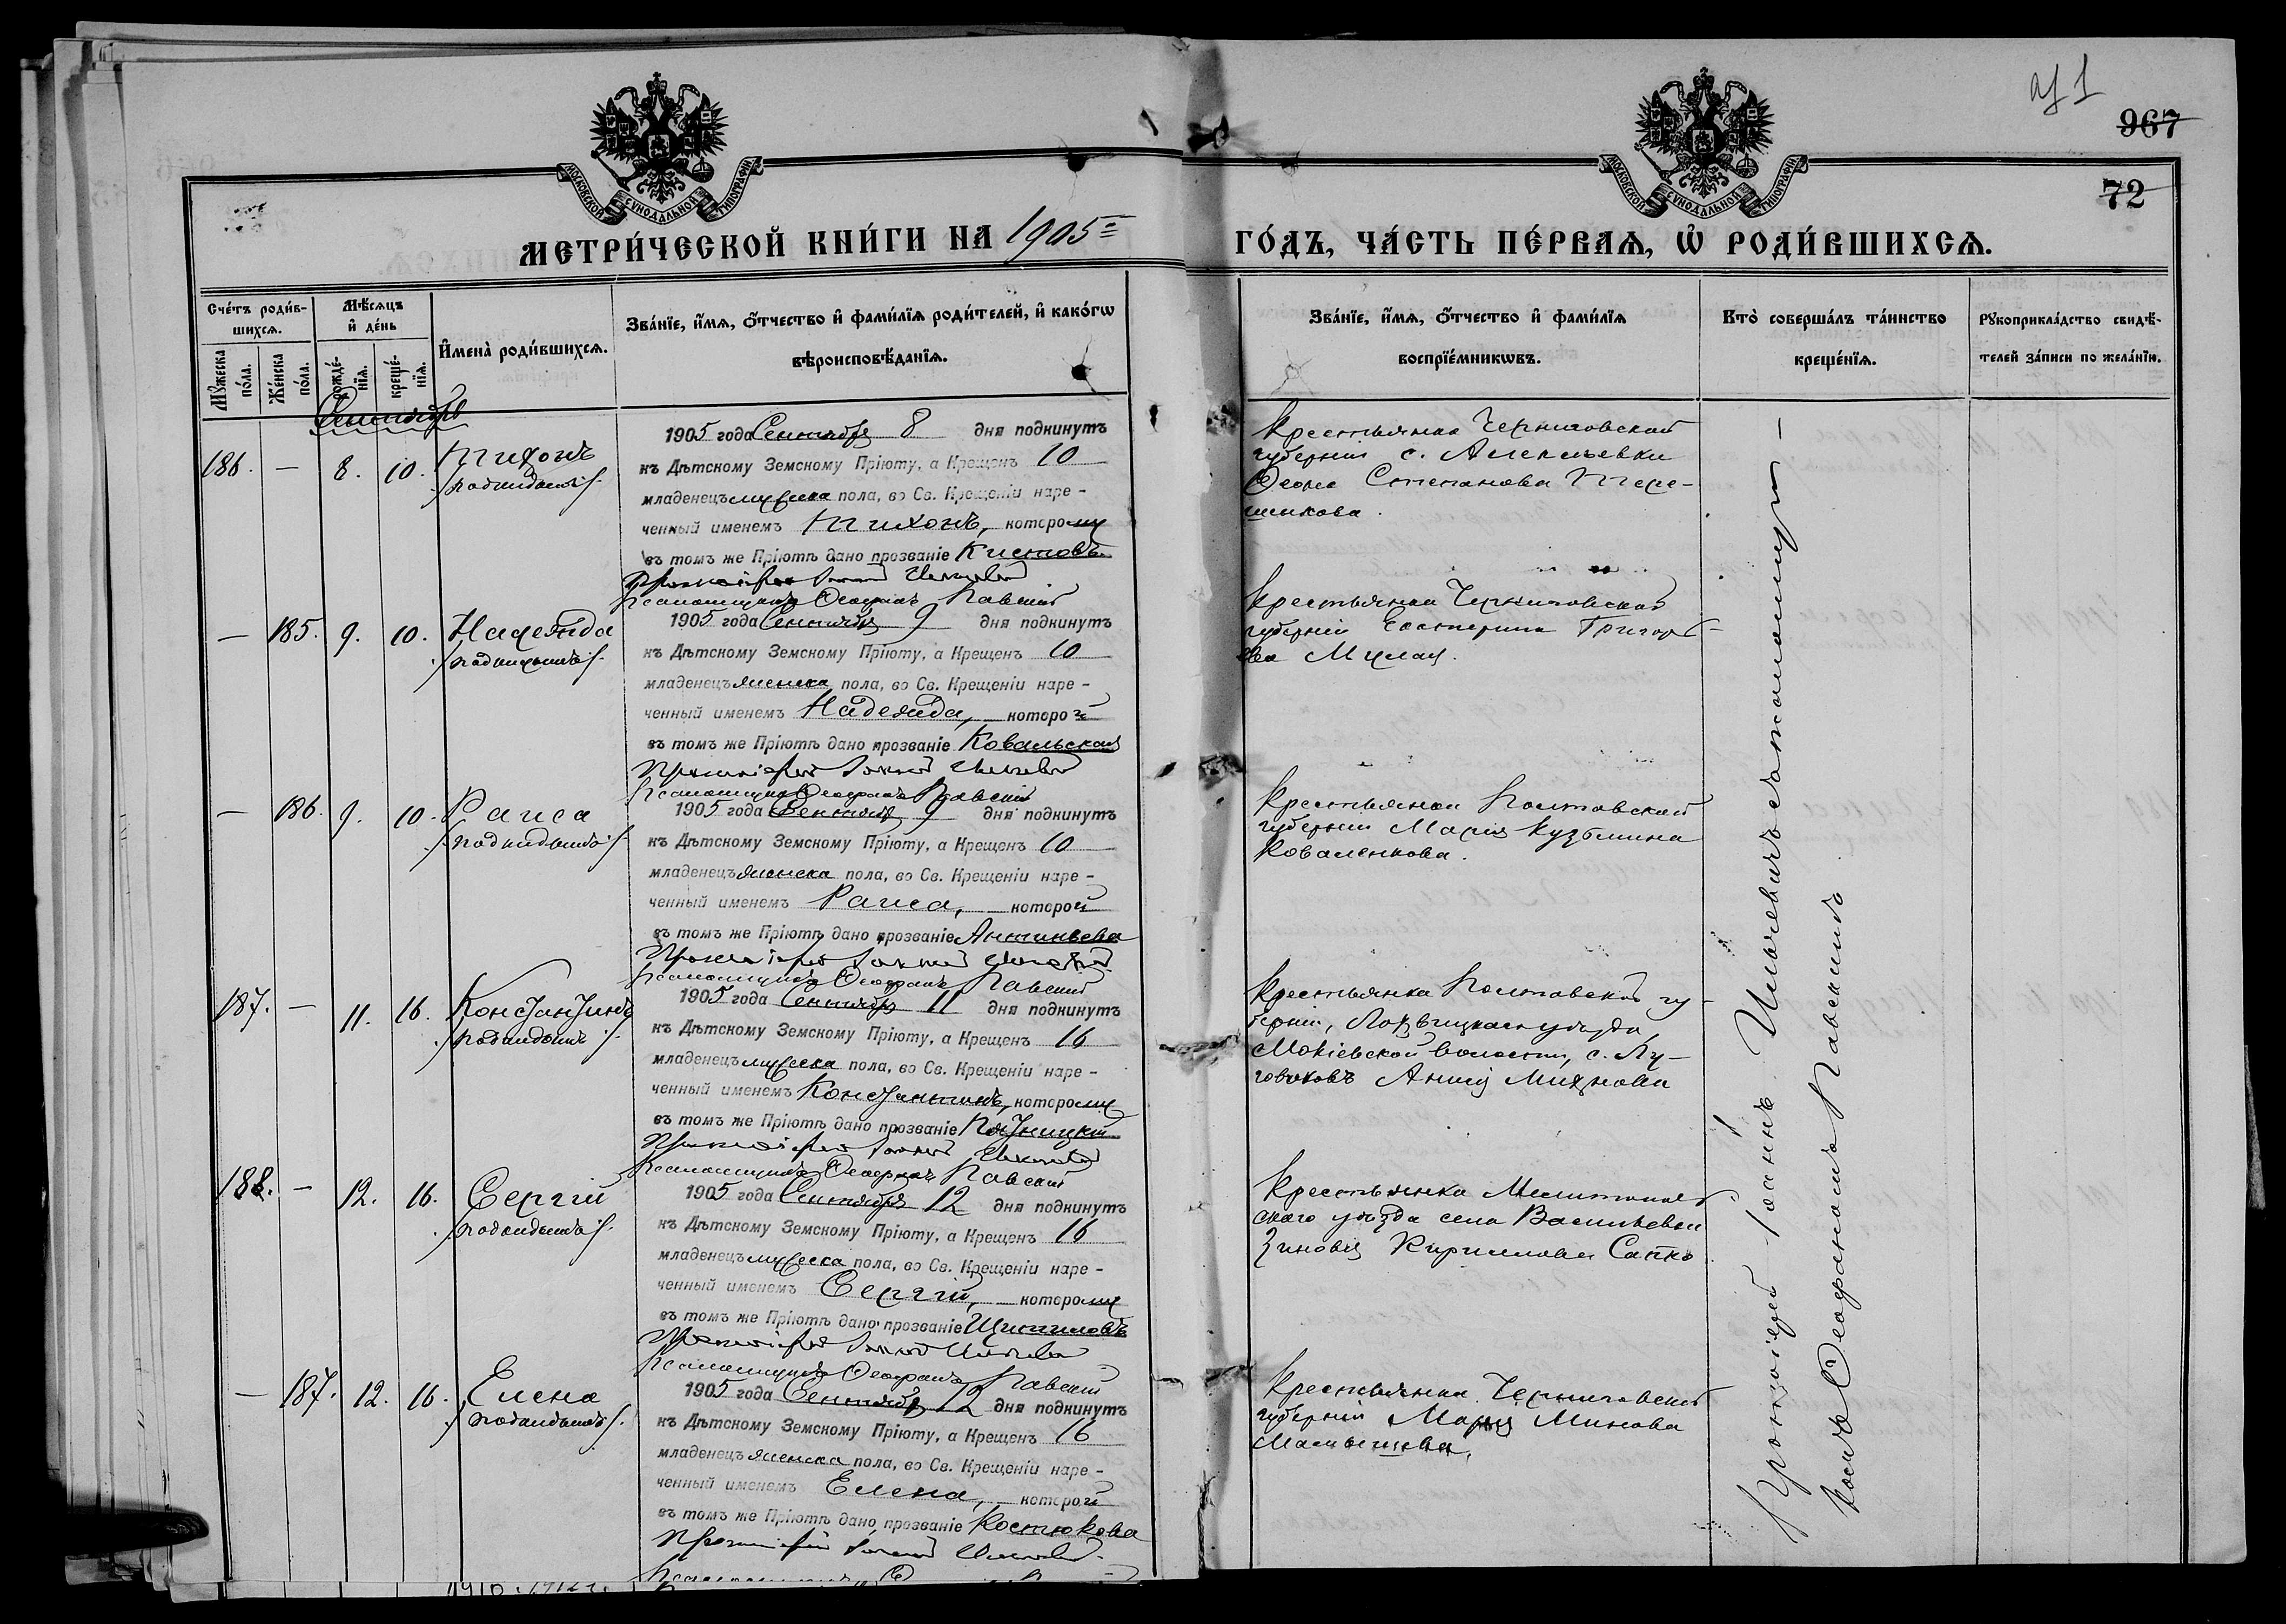 аf 1
967
72
МОСКОВСКОЙ СѴНОДАЛЬНОЙ ТИПОГРАФІИ
МОСКОВСКОЙ СѴНОДАЛЬНОЙ ТИПОГРАФІИ
МЕТРИ́ЧЕСКОЙ КНИ́ГИ НА 1905=
ГО́ДЪ, ЧА́СТЬ ПЕ́РВАѦ, Ѡ҆ РОДИ́ВШИХСѦ.
Сче́тъ роди́в-
шихсѧ.
Мѣ́сѧцъ
и҆ де́нь
И҆мена̀ роди́вшихсѧ.
Зва́нїе, и҆́мѧ, ѻ҆́тчество и҆ фами́лїѧ роди́телей, и҆ како́гѡ
вѣроисповѣ́данїѧ.
Мꙋ́жеска
по́ла.
Же́нска
по́ла.
рожде́-
нїѧ.
креще́-
нїѧ.
Зва́нїе, и҆́мѧ, ѻ҆́тчество и҆ фами́лїѧ
воспрїе́мникѡвъ.
Кто̀ соверша́лъ та́инство
креще́нїѧ.
Рꙋкоприкла́дство свидѣ́-
телей за́писи по жела́нїю.
Сентябрь
186. — 8. 10. Тихонъ
/подкидышъ/.
1905 года Сентября 8 дня подкинутъ
къ Дѣтскому Земскому Пріюту, а Крещенъ 10
младенецъ мужеска пола, во Св. Крещеніи наре-
ченный именемъ Тихонъ, которому
въ томъ же Пріютѣ дано прозваніе Кистовъ
Протоіерей Іоаннъ Ильчевичъ
Псаломщикъ Ѳеофанъ Павскій
Крестьянка Черниговской
губерніи с. Алексѣевки
Ѳеона Степанова Тере-
щенкова.
— 185. 9. 10. Надежда
/подкидышъ/.
1905 года Сентября 9 дня подкинутъ
къ Дѣтскому Земскому Пріюту, а Крещенъ 10
младенецъ женска пола, во Св. Крещеніи наре-
ченный именемъ Надежда, которой
въ томъ же Пріютѣ дано прозваніе Ковальская
Протоіерей Іоаннъ Ильчевичъ
Псаломщикъ Ѳеофанъ Павскій
Крестьянка Черниговской
губерніи Екатерина Григорь-
ева
— 186. 9. 10. Раиса
/подкидышъ/.
1905 года Сентября 9 дня подкинутъ
къ Дѣтскому Земскому Пріюту, а Крещенъ 10
младенецъ женска пола, во Св. Крещеніи наре-
ченный именемъ Раиса, которой
въ томъ же Пріютѣ дано прозваніе
Протоіерей Іоаннъ Ильчевичъ
Псаломщикъ Ѳеофанъ Павскій
Крестьянка Полтавской
губерніи Марія Кузьмина
Коваленкова.
187. — 11. 16. Константинъ
/подкидышъ/.
1905 года Сентября 11 дня подкинутъ
къ Дѣтскому Земскому Пріюту, а Крещенъ 16
младенецъ мужеска пола, во Св. Крещеніи наре-
ченный именемъ Константинъ, которому
въ томъ же Пріютѣ дано прозваніе
Протоіерей Іоаннъ Ильчевичъ
Псаломщикъ Ѳеофанъ Павскій
Крестьянка Полтавской гу-
берніи, Лохвицкаго уѣзда,
волости, с. Лу-
188. — 12. 16. Сергій
/подкидышъ/.
1905 года Сентября 12 дня подкинутъ
къ Дѣтскому Земскому Пріюту, а Крещенъ 16
младенецъ мужеска пола, во Св. Крещеніи наре-
ченный именемъ Сергій, которому
въ томъ же Пріютѣ дано прозваніе Щипиловъ
Протоіерей Іоаннъ Ильчевичъ
Псаломщикъ Ѳеофанъ Павскій
Крестьянка Мелитополь-
скаго уѣзда села Васильевки
Зиновія Кириллова Сапко
— 187. 12. 16. Елена
/подкидышъ/.
1905 года Сентября 12 дня подкинутъ
къ Дѣтскому Земскому Пріюту, а Крещенъ 16
младенецъ женска пола, во Св. Крещеніи наре-
ченный именемъ Елена, которой
въ томъ же Пріютѣ дано прозваніе Костюкова
Протоіерей Іоаннъ Ильчевичъ
Крестьянка Черниговской
губерніи Марія Минова
Малышева.
Протоіерей Іоаннъ Ильчевичъ съ псаломщи—
комъ Ѳеофаномъ Павскимъ